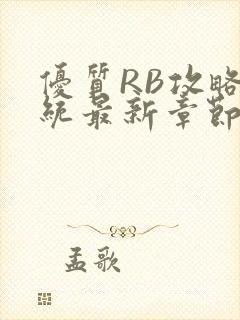 優質RB攻略
統最新章節
孟歌